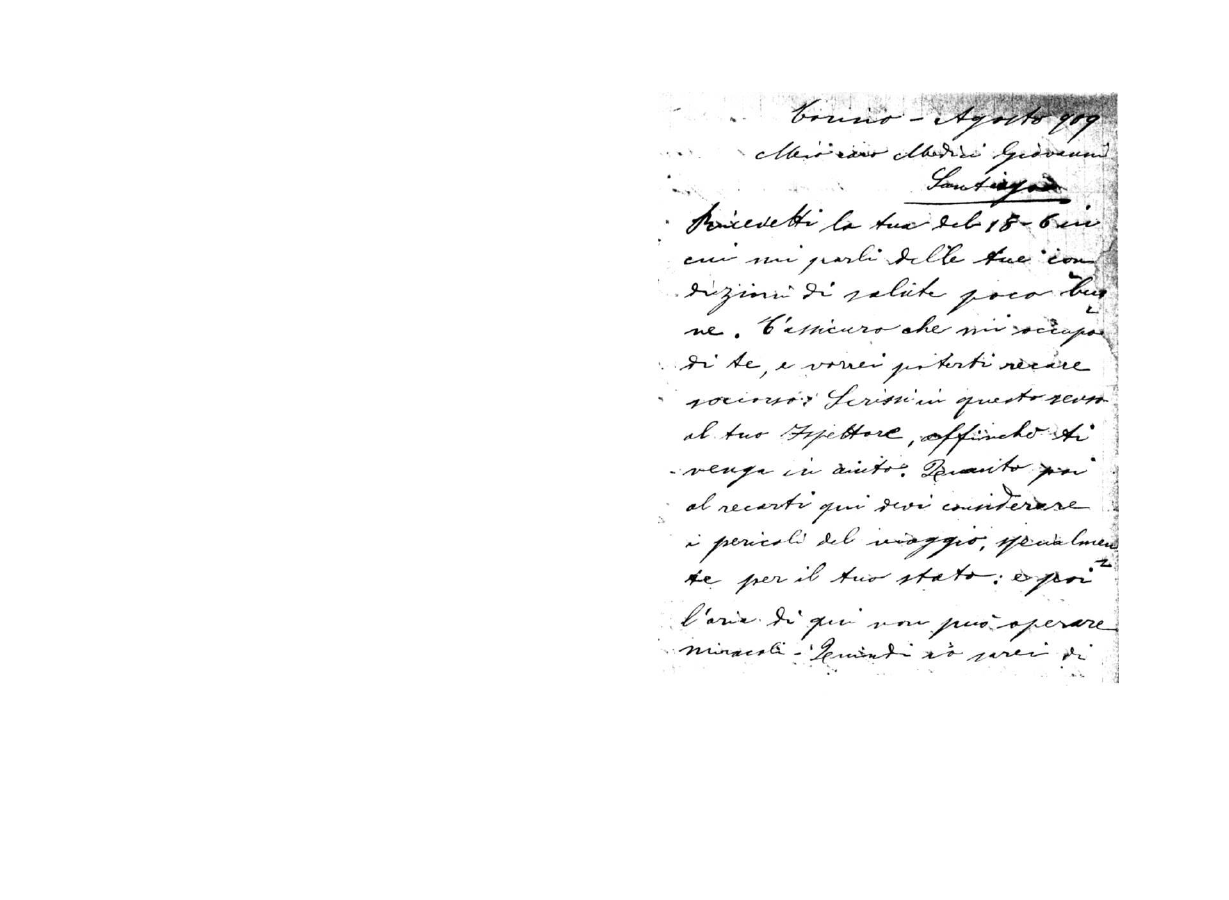 Torino - Agosto 909
Mio caro Medici Giovanni
Santiago
Ricevetti la tua del 18-6 in
cui mi parli delle tue con
dizioni di salute poco buo
ne. T'assicuro che mi occupo
di te, e vorrei poterti recare
soccorso: Scrissi in questo senso
al tuo Ispettore, affinchè ti
venga in aiuto. Quanto poi
al recarti qui devi considerare
i pericoli del viaggio, specialmen
te per il tuo stato: e poi
l'aria di qui non può operare
miracoli - Quindi io sarei di